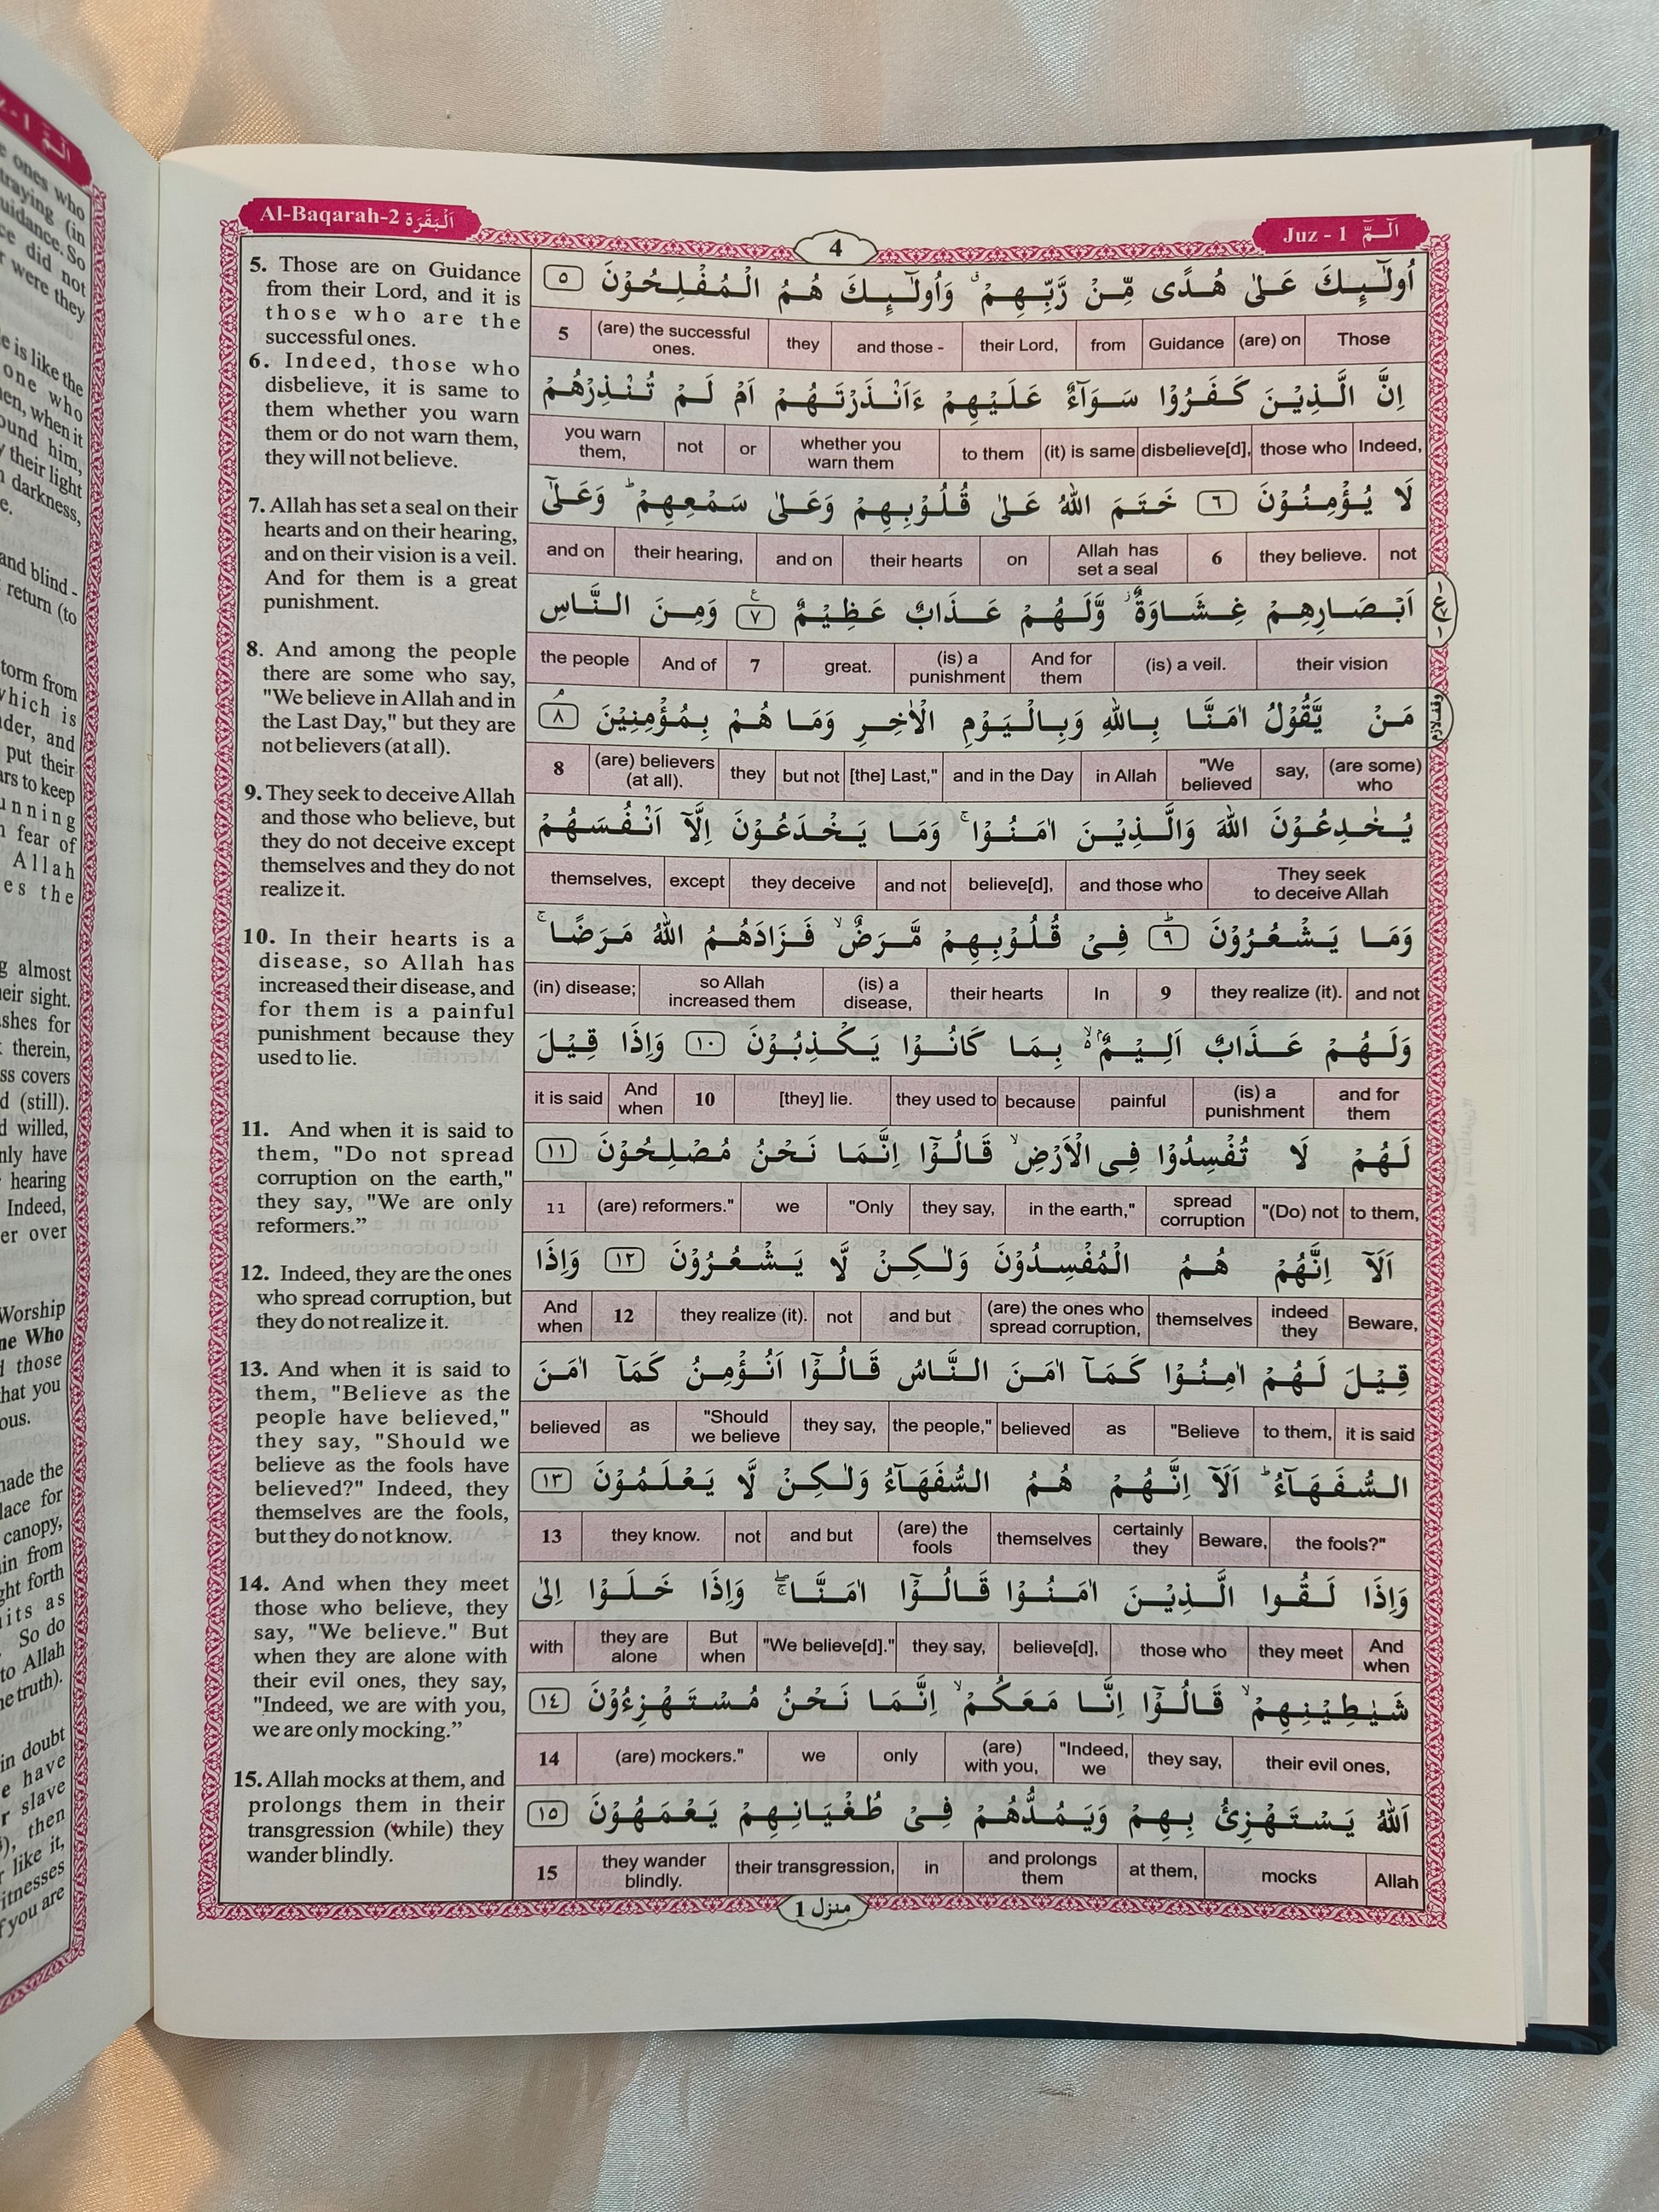 Al-Baqarah-2 اَلْبَقَرَة
4
Juz - 1 الٓـمّٓ
5. Those are on Guidance
from their Lord, and it is
those who are the
successful ones.
6. Indeed, those who
disbelieve, it is same to
them whether you warn
them or do not warn them,
they will not believe.
7. Allah has set a seal on their
hearts and on their hearing,
and on their vision is a veil.
And for them is a great
punishment.
8. And among the people
there are some who say,
"We believe in Allah and in
the Last Day," but they are
not believers (at all).
9. They seek to deceive Allah
and those who believe, but
they do not deceive except
themselves and they do not
realize it.
10. In their hearts is a
disease, so Allah has
increased their disease, and
for them is a painful
punishment because they
used to lie.
11. And when it is said to
them, "Do not spread
corruption on the earth,"
they say, "We are only
reformers.”
12. Indeed, they are the ones
who spread corruption, but
they do not realize it.
13. And when it is said to
them, "Believe as the
people have believed,"
they say, "Should we
believe as the fools have
believed?" Indeed, they
themselves are the fools,
but they do not know.
14. And when they meet
those who believe, they
say, "We believe." But
when they are alone with
their evil ones, they say,
"Indeed, we are with you,
we are only mocking.”
15. Allah mocks at them, and
prolongs them in their
transgression (while) they
wander blindly.
اُولٰٓئِكَ عَلٰى هُدًى مِّنْ رَّبِّهِمْ ۗ وَاُولٰٓئِكَ هُمُ الْمُفْلِحُوْنَ ٥
Those (are) on Guidance from their Lord, and those - they (are) the successful ones. 5
اِنَّ الَّذِيْنَ كَفَرُوْا سَوَآءٌ عَلَيْهِمْ ءَاَنْذَرْتَهُمْ اَمْ لَمْ تُنْذِرْهُمْ
Indeed, those who disbelieve[d], (it) is same to them whether you warn them or not you warn them,
لَا يُؤْمِنُوْنَ ٦ خَتَمَ اللّٰهُ عَلٰى قُلُوْبِهِمْ وَعَلٰى سَمْعِهِمْ ؕ وَعَلٰٓى
not they believe. 6 Allah has set a seal on their hearts and on their hearing, and on
اَبْصَارِهِمْ غِشَاوَةٌ ۡ وَّلَهُمْ عَذَابٌ عَظِيْمٌ ٧ وَمِنَ النَّاسِ
their vision (is) a veil. And for them (is) a punishment great. 7 And of the people
مَنْ يَّقُوْلُ اٰمَنَّا بِاللّٰهِ وَبِالْيَوْمِ الْاٰخِرِ وَمَا هُمْ بِمُؤْمِنِيْنَ ٨
(are some) who say, "We believed in Allah and in the Day [the] Last," but not they (are) believers (at all). 8
يُخٰدِعُوْنَ اللّٰهَ وَالَّذِيْنَ اٰمَنُوْا ۚ وَمَا يَخْدَعُوْنَ اِلَّآ اَنْفُسَهُمْ
They seek to deceive Allah and those who believe[d], and not they deceive except themselves,
وَمَا يَشْعُرُوْنَ ٩ فِيْ قُلُوْبِهِمْ مَّرَضٌ ۙ فَزَادَهُمُ اللّٰهُ مَرَضًا ۚ
and not they realize (it). 9 In their hearts (is) a disease, so Allah increased them (in) disease;
وَلَهُمْ عَذَابٌ اَلِيْمٌ ۙ بِمَا كَانُوْا يَكْذِبُوْنَ ١٠ وَاِذَا قِيْلَ
and for them (is) a punishment painful because they used to [they] lie. 10 And when it is said
لَهُمْ لَا تُفْسِدُوْا فِى الْاَرْضِ ۙ قَالُوْٓا اِنَّمَا نَحْنُ مُصْلِحُوْنَ ١١
to them, "(Do) not spread corruption in the earth," they say, "Only we (are) reformers." 11
اَلَآ اِنَّهُمْ هُمُ الْمُفْسِدُوْنَ وَلٰكِنْ لَّا يَشْعُرُوْنَ ١٢ وَاِذَا
Beware, indeed they themselves (are) the ones who spread corruption, and but not they realize (it). 12 And when
قِيْلَ لَهُمْ اٰمِنُوْا كَمَآ اٰمَنَ النَّاسُ قَالُوْٓا اَنُؤْمِنُ كَمَآ اٰمَنَ
it is said to them, "Believe as believed the people," they say, "Should we believe as believed
السُّفَهَآءُ ؕ اَلَآ اِنَّهُمْ هُمُ السُّفَهَآءُ وَلٰكِنْ لَّا يَعْلَمُوْنَ ١٣
the fools?" Beware, certainly they themselves (are) the fools and but not they know. 13
وَاِذَا لَقُوا الَّذِيْنَ اٰمَنُوْا قَالُوْٓا اٰمَنَّا ۖۚ وَاِذَا خَلَوْا اِلٰى
And when they meet those who believe[d], they say, "We believe[d]." But when they are alone with
شَيٰطِيْنِهِمْ ۙ قَالُوْٓا اِنَّا مَعَكُمْ ۙ اِنَّمَا نَحْنُ مُسْتَهْزِءُوْنَ ١٤
their evil ones, they say, "Indeed, we (are) with you, only we (are) mockers." 14
اَللّٰهُ يَسْتَهْزِئُ بِهِمْ وَيَمُدُّهُمْ فِيْ طُغْيَانِهِمْ يَعْمَهُوْنَ ١٥
Allah mocks at them, and prolongs them in their transgression, they wander blindly. 15
منزل 1